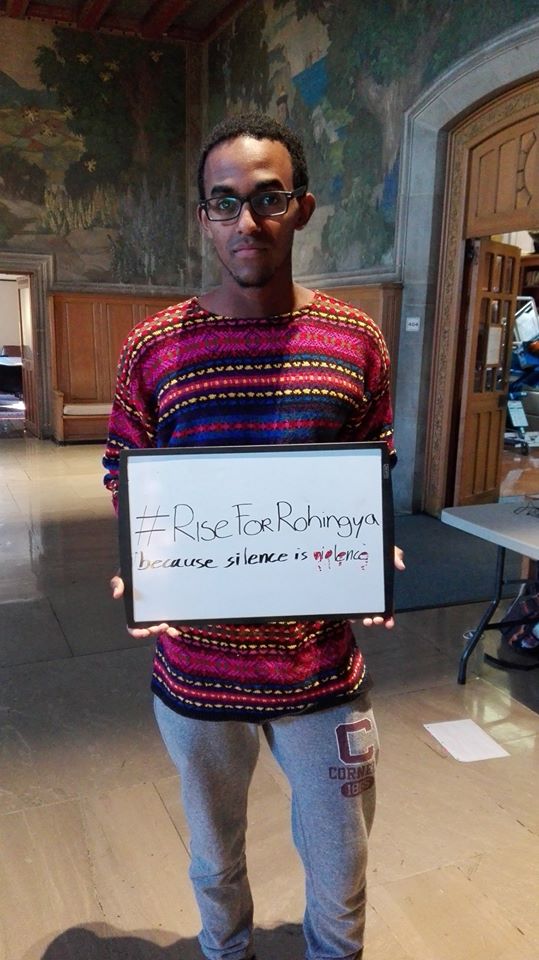 #RiseForRohingya
because silence is violence
404
C
CORNE
1865